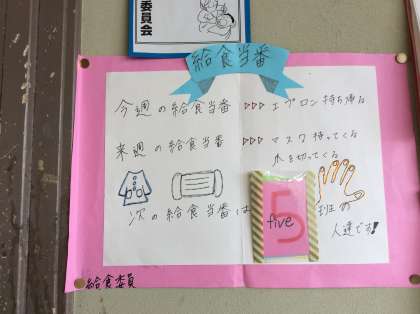 委員会
給食当番
今週の給食当番 ▷▷▷ エプロン持ち帰る
来週の給食当番 ▷▷▷ マスク持ってくる
爪を切ってくる
次の給食当番は 5 five 班の
人達です!
給食委員